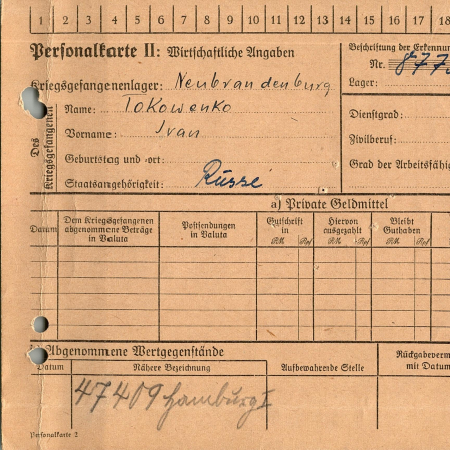 1 2 3 4 5 6 7 8 9 10 11 12 13 14 15 16 17 18
Personalkarte II: Wirtschaftliche Angaben
Beschriftung der Erkennun
Nr. 877
Kriegsgefangenenlager: Neubrandenburg
Lager:
Des Kriegsgefangenen
Name: Tokowenko
Vorname: Ivan
Dienstgrad:
Zivilberuf:
Geburtstag und -ort:
Grad der Arbeitsfähig
Staatsangehörigkeit: Russe
a) Private Geldmittel
Datum
Dem Kriegsgefangenen abgenommene Beträge in Valuta
Postsendungen in Valuta
Gutschrift in
RM Rpf
Hiervon ausgezahlt
RM Rpf
Bleibt Guthaben
RM Rpf
Abgenommene Wertgegenstände
Datum
Nähere Bezeichnung
Aufbewahrende Stelle
Rückgabeverm
mit Datum
47409 Hamburg I
Personalkarte 2